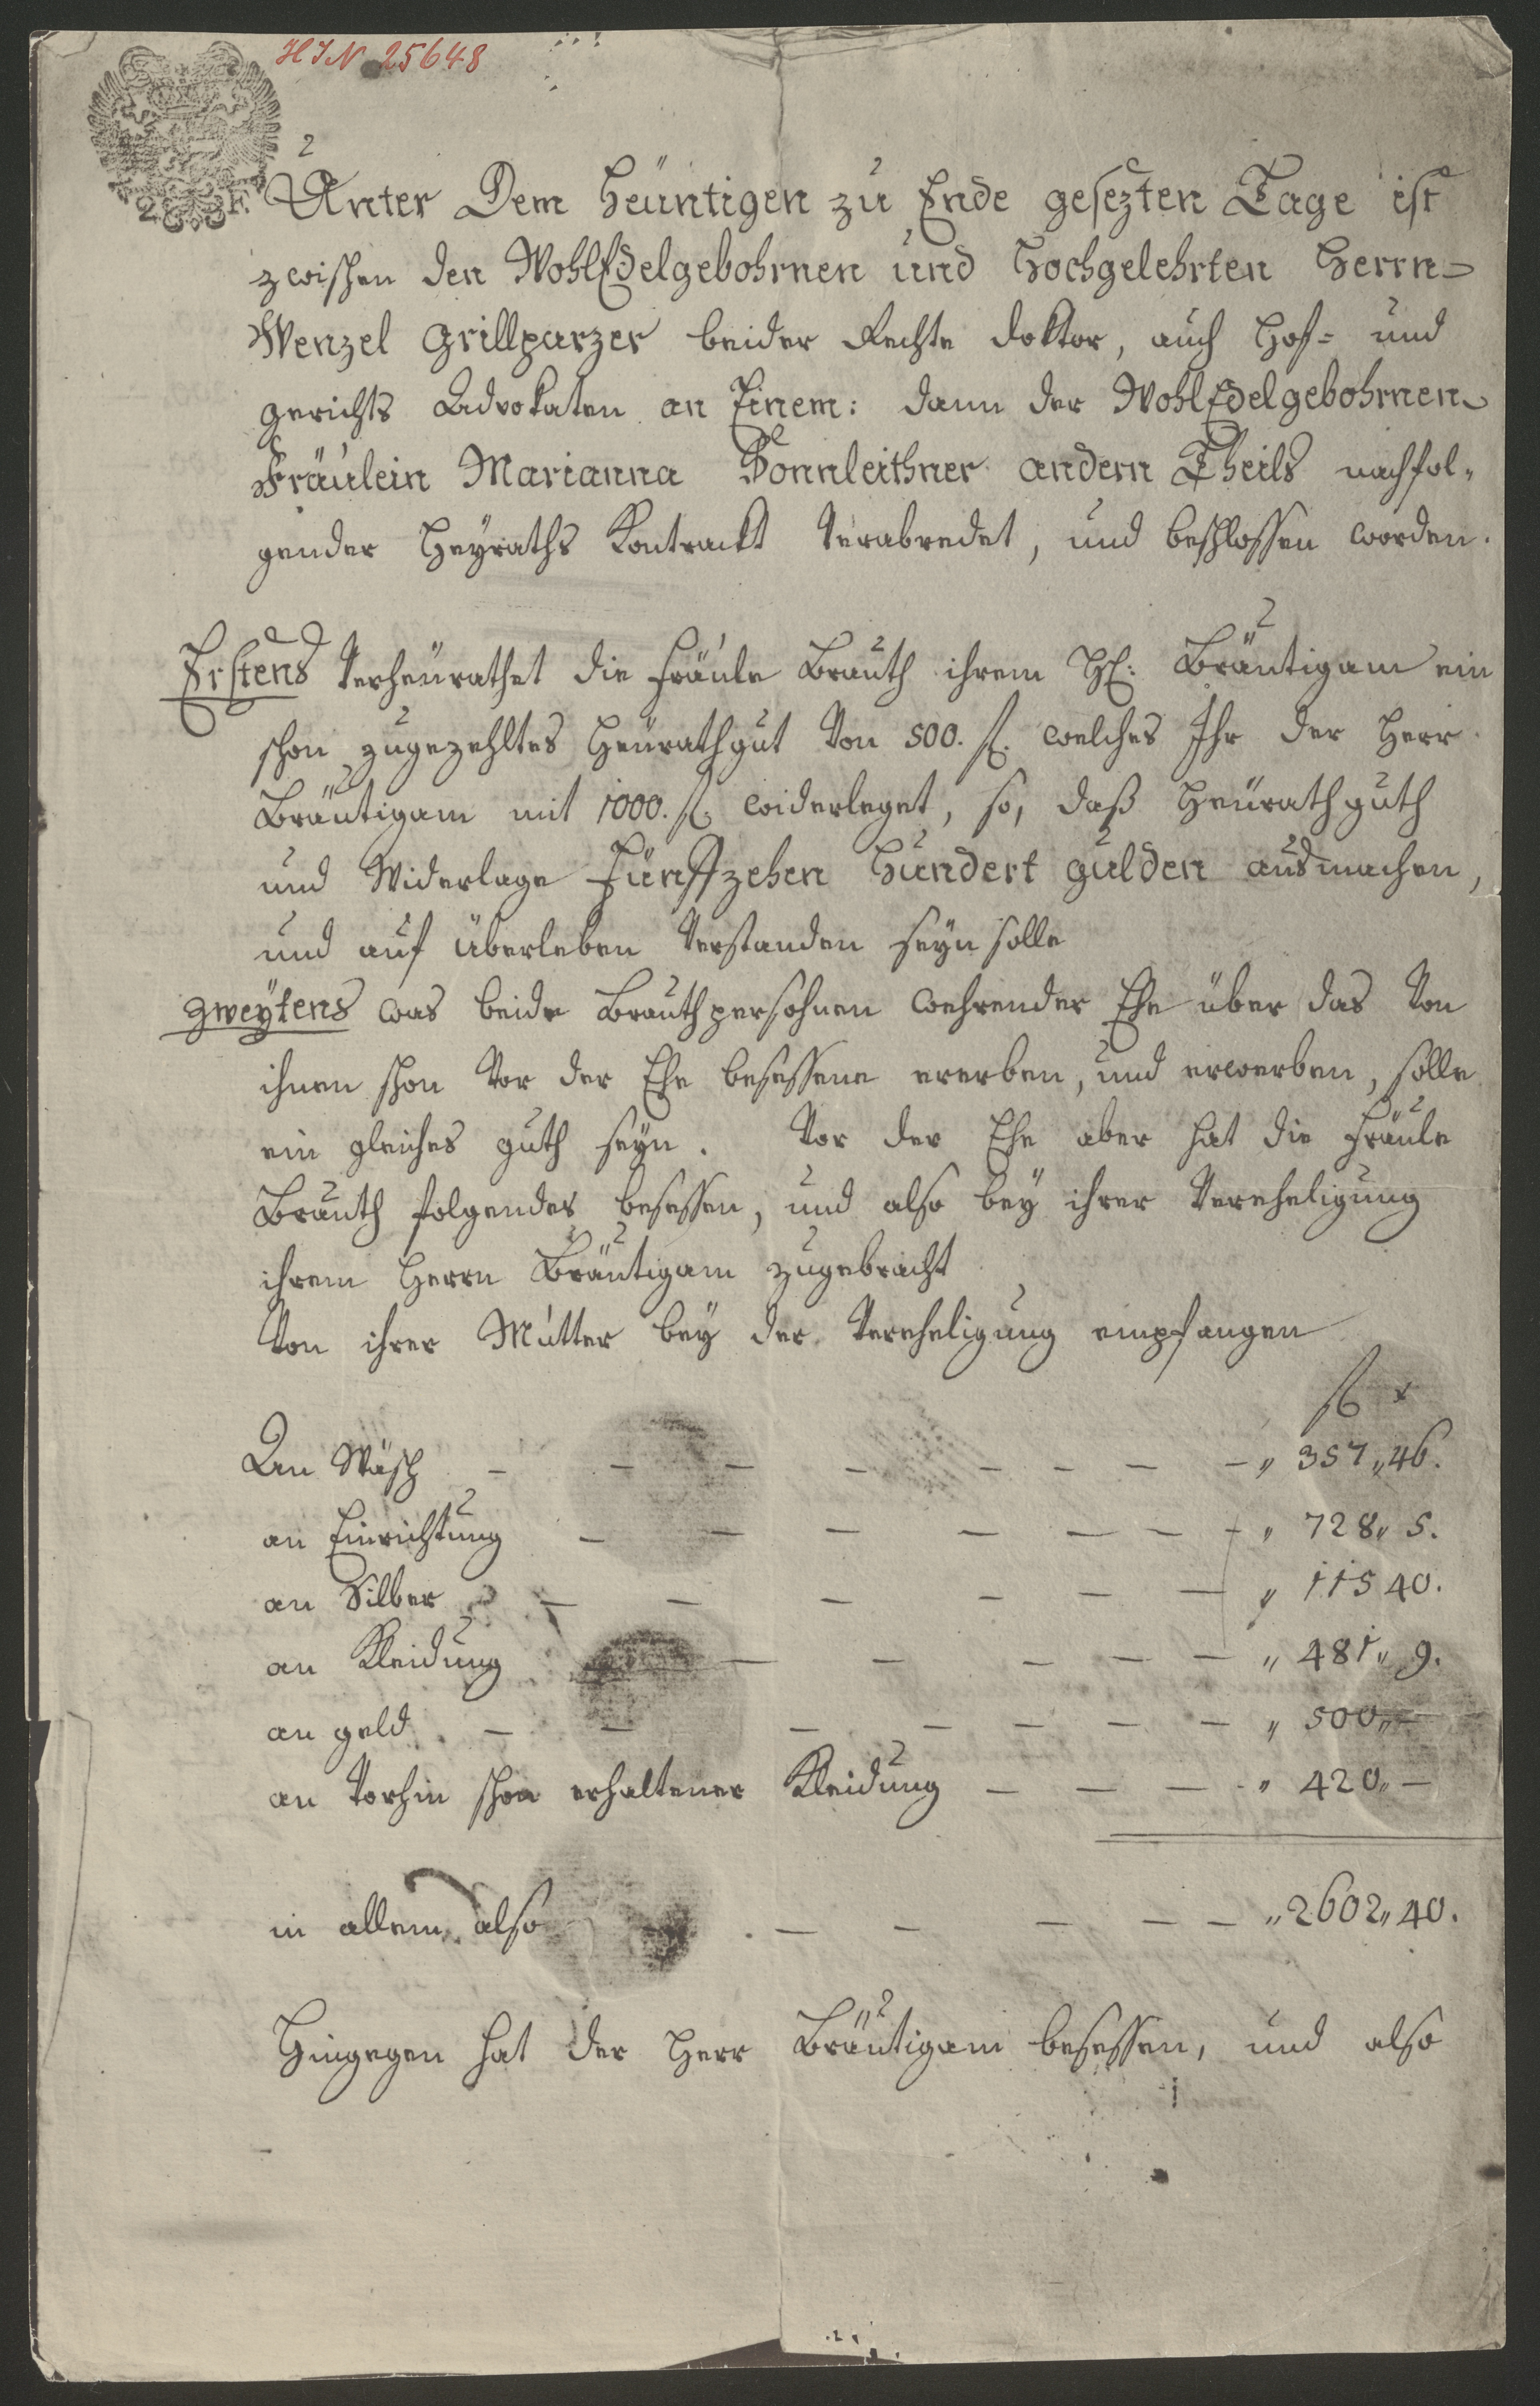 HIN 25648
2 F.
Unter Dem Heüntigen zu Ende gesezten Tage ist
zwischen den WohlEdelgebohrnen und Hochgelehrten Herrn
Wenzel Grillparzer beider Rechte Doktor, auch Hof= und
Gerichts Advokaten an Einem: dann der WohlEdelgebohrnen
Fräulein Marianna Sonnleithner andern Theils nachfol„
gender Heyraths Kontrackt verabredet, und beschlossen worden.
Erstens verheürathet die Fräule Brauth ihrem H: Bräutigam ein
schon zugezehltes Heürathgut von 500. fl. welches Ihr der Herr
Bräutigam mit 1000. fl. widerleget, so, daß Heürathguth
und Widerlage Fünffzehen Hundert Gulden ausmachen,
und auf Überleben verstanden seyn solle
Zweytens was beide Brauthpersohnen wehrender Ehe über das von
ihnen schon vor der Ehe besessene ererben, und erwerben, solle
ein gleiches Guth seyn. Vor der Ehe aber hat die Fräule
Brauth folgendes besessen, und also bey ihrer Vereheligung
ihrem Herrn Bräutigam zugebracht
Von ihrer Mutter bey der Vereheligung empfangen
fl x
An Wäsch — — — — — — — —„ 357„46.
an Einrichtung — — — — — — —„ 728„ 5.
an Silber — — — — — —„ 115 40.
an Kleidung — — — — —„ 481„ 9.
an Geld — — — — — — —„ 500„—
an vorhin schon erhaltener Kleidung — — — -„ 420„—
in allem also — — — — — „2602„40.
Hingegen hat der Herr Bräutigam besessen, und also